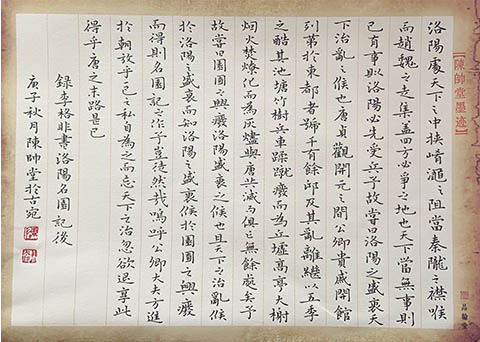 【陳帥堂墨迹】
洛陽處天下之中挾崤澠之阻當秦隴之襟喉
而趙魏之走集蓋四方必爭之地也天下當無事則
已有事則洛陽必先受兵予故嘗曰洛陽之盛衰天
下治亂之候也唐貞觀開元之間公卿貴戚開館
列第於東都者號千有餘邸及其亂離繼以五季
之酷其池塘竹樹兵車蹂蹴廢而為丘墟高亭大榭
烟火焚燎化而為灰燼與唐共滅而俱亡無餘處矣予
故嘗曰園圃之興廢洛陽盛衰之候也且天下之治亂候
於洛陽之盛衰而知洛陽之盛衰候於園圃之興廢
而得則名園記之作予豈徒然哉嗚呼公卿大夫方進
於朝放乎一己之私自為之而忘天下之治忽欲退享此
得乎唐之末路是已
錄李格非書洛陽名園記後
庚子秋月陳帥堂於古宛